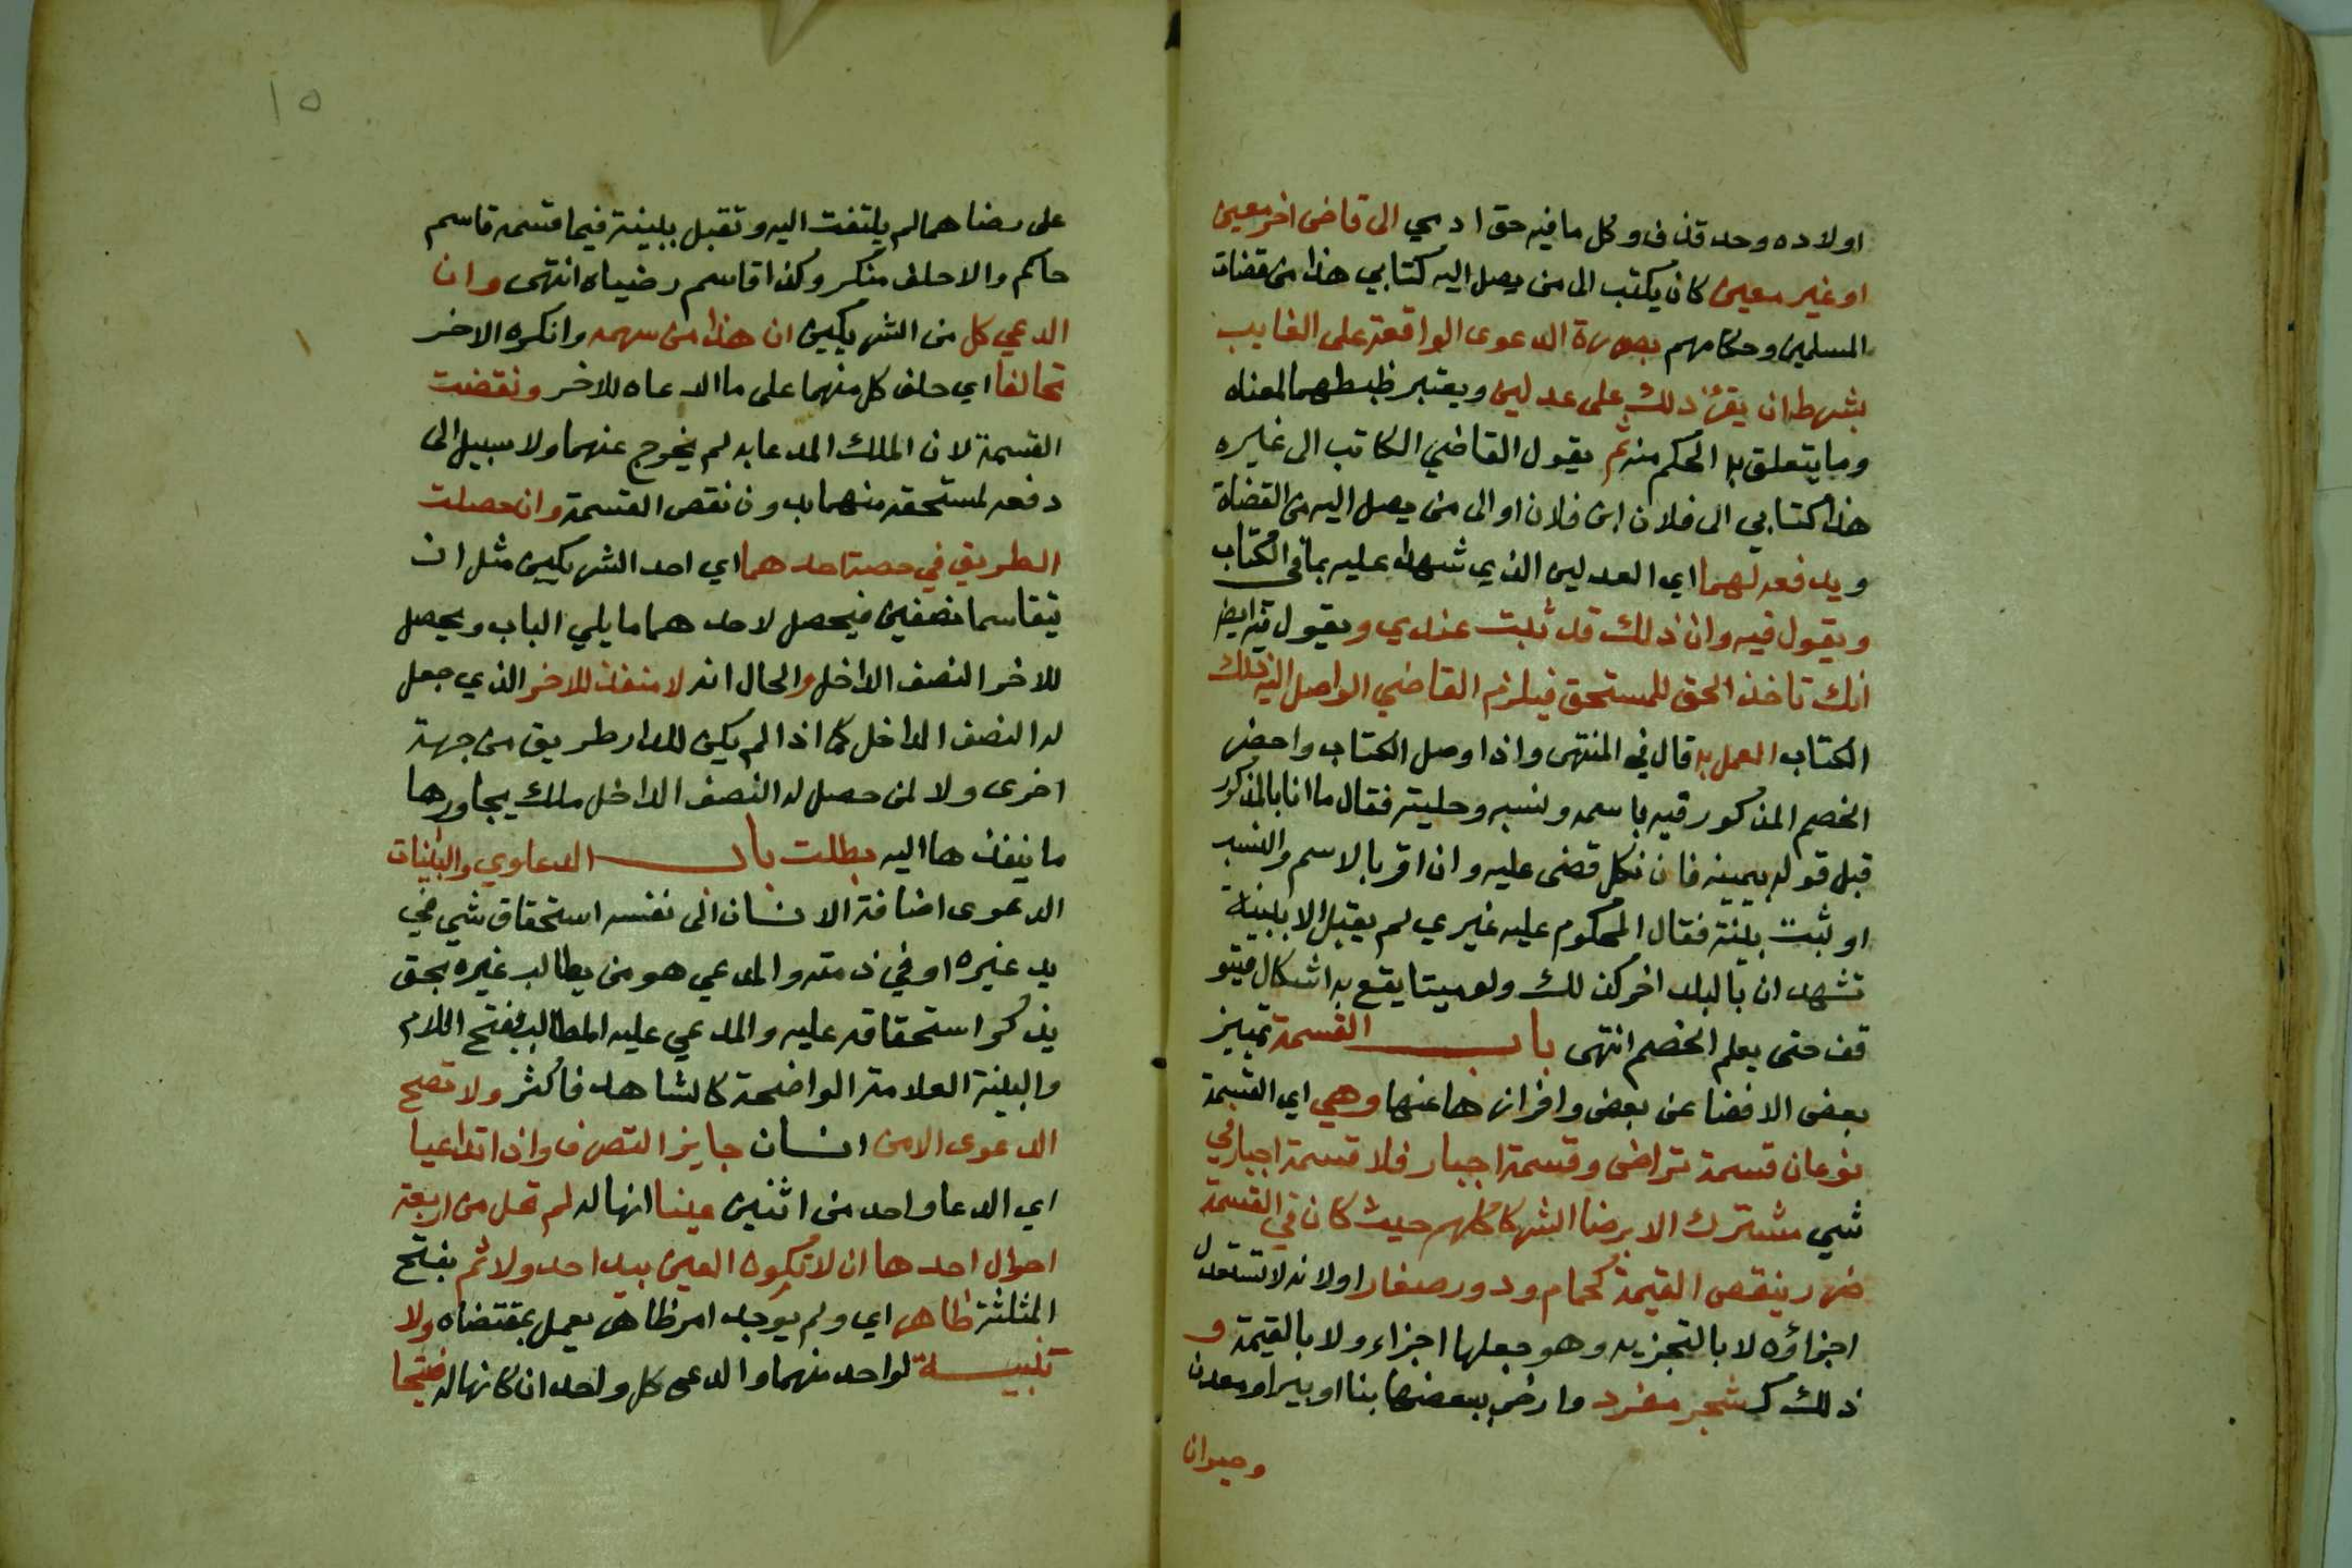 اولاده وحد قذف وكل ما فيه حق ادمي الى قاضى اخر معين
او غير معين كان يكتب الى من يصل اليه كتابي هذا من قضات
المسلمين وحكامهم بصورة الدعوى الواقعة على الغايب
بشرط ان يقرئ ذلك على عدلين ويعتبر ظبطهما لمعناه
وما يتعلق به الحكم منه ثم يقول القاضي الكاتب الى غيره
هذا كتابي الى فلان ابن فلان او الى من يصل اليه من القضاة
ويدفعه لهما اي العدلين الذي شهدا عليه بما في الكتاب
ويقول فيه وان ذلك قد ثبت عندي ويقول فيه ايضا
انك تاخذ الحق للمستحق فيلزم القاضي الواصل اليه ذلك
الكتاب العمل به قال في المنتهى واذا وصل الكتاب واحضر
الخصم المذكور فيه باسمه ونسبه وحليته فقال ما انا بالمذكور
قبل قوله بيمينه فان نكل قضى عليه وان اقر بالاسم والنسب
او ثبت ببينة فقال المحكوم عليه غيري لم يقبل الا ببينة
تشهد ان بالبلد اخر كذلك ولو ميتا يقع به اشكال فيتو
قف حتى يعلم الخصم انتهى باب القسمة تمييز
بعض الانصبا عن بعض وافرازها عنها وهي اي القسمة
نوعان قسمة تراضى وقسمة اجبار فلا قسمة اجبار في
شي مشترك الا برضا الشركا كلهم حيث كان في القسمة
ضرر ينقص القيمة كحمام ودور صغار اولانه لا تتعدل
اجزاؤه لا بالتجزيه وهو جعلها اجزاء ولا بالقيمة و
ذلك كشجر مفرد وارض ببعضها بنا او بير او معدن
وحيوان
١٥
على رضاهما لم يلتفت اليه وتقبل ببينة فيما قسمه قاسم
حاكم والا حلف منكر وكذا قاسم رضياه انتهى وان
الدعي كل من الشريكين ان هذا من سهمه وانكره الاخر
تحالفا اي حلف كل منهما على ما الدعاه للاخر ونقضت
القسمة لان الملك المدعا به لم يخرج عنهما ولا سبيل الى
دفعه لمستحقه منهما بدون نقص القسمة وان حصلت
الطريق في حصة احدهما اي احد الشريكين مثل ان
يتقاسما نصفين فيحصل لاحدهما ما يلي الباب ويحصل
للاخر النصف الداخل والحال انه لا منفذ للاخر الذي جعل
له النصف الداخل كما اذا لم يكن للدار طريق من جهة
اخرى ولا لمن حصل له النصف الداخل ملك يجاورها
ما ينفذها اليه بطلت باب الدعاوي والبينات
الدعوى اضافة الانسان الى نفسه استحقاق شي في
يد غيره او في ذمته والمدعي هو من يطالب غيره بحق
يذكر استحقاقه عليه والمدعي عليه المطالب بفتح اللام
والبينة العلامة الواضحة كالشاهد فاكثر ولا تصح
الدعوى الا من انسان جايز التصرف واذا تداعيا
اي الدعا واحد من اثنين عينا انها له لم تخل من اربعة
احوال احدها ان لا تكون العين بيد احد ولا ثم بفتح
المثلثة ظاهر اي ولم يوجد امر ظاهر يعمل بمقتضاه ولا
بينة لواحد منهما والدعى كل واحد ان كانها له فيتحا